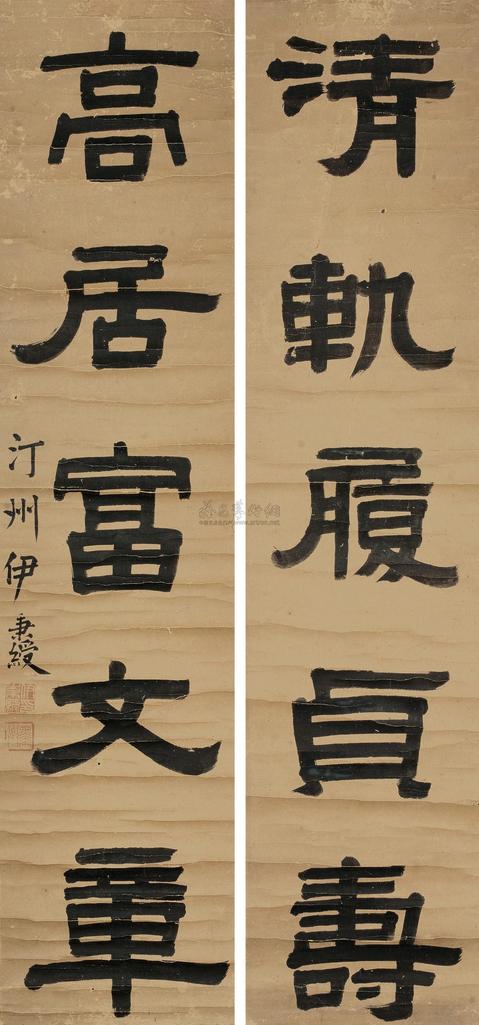 清軌履貞壽
高居富文章
汀州伊秉綬